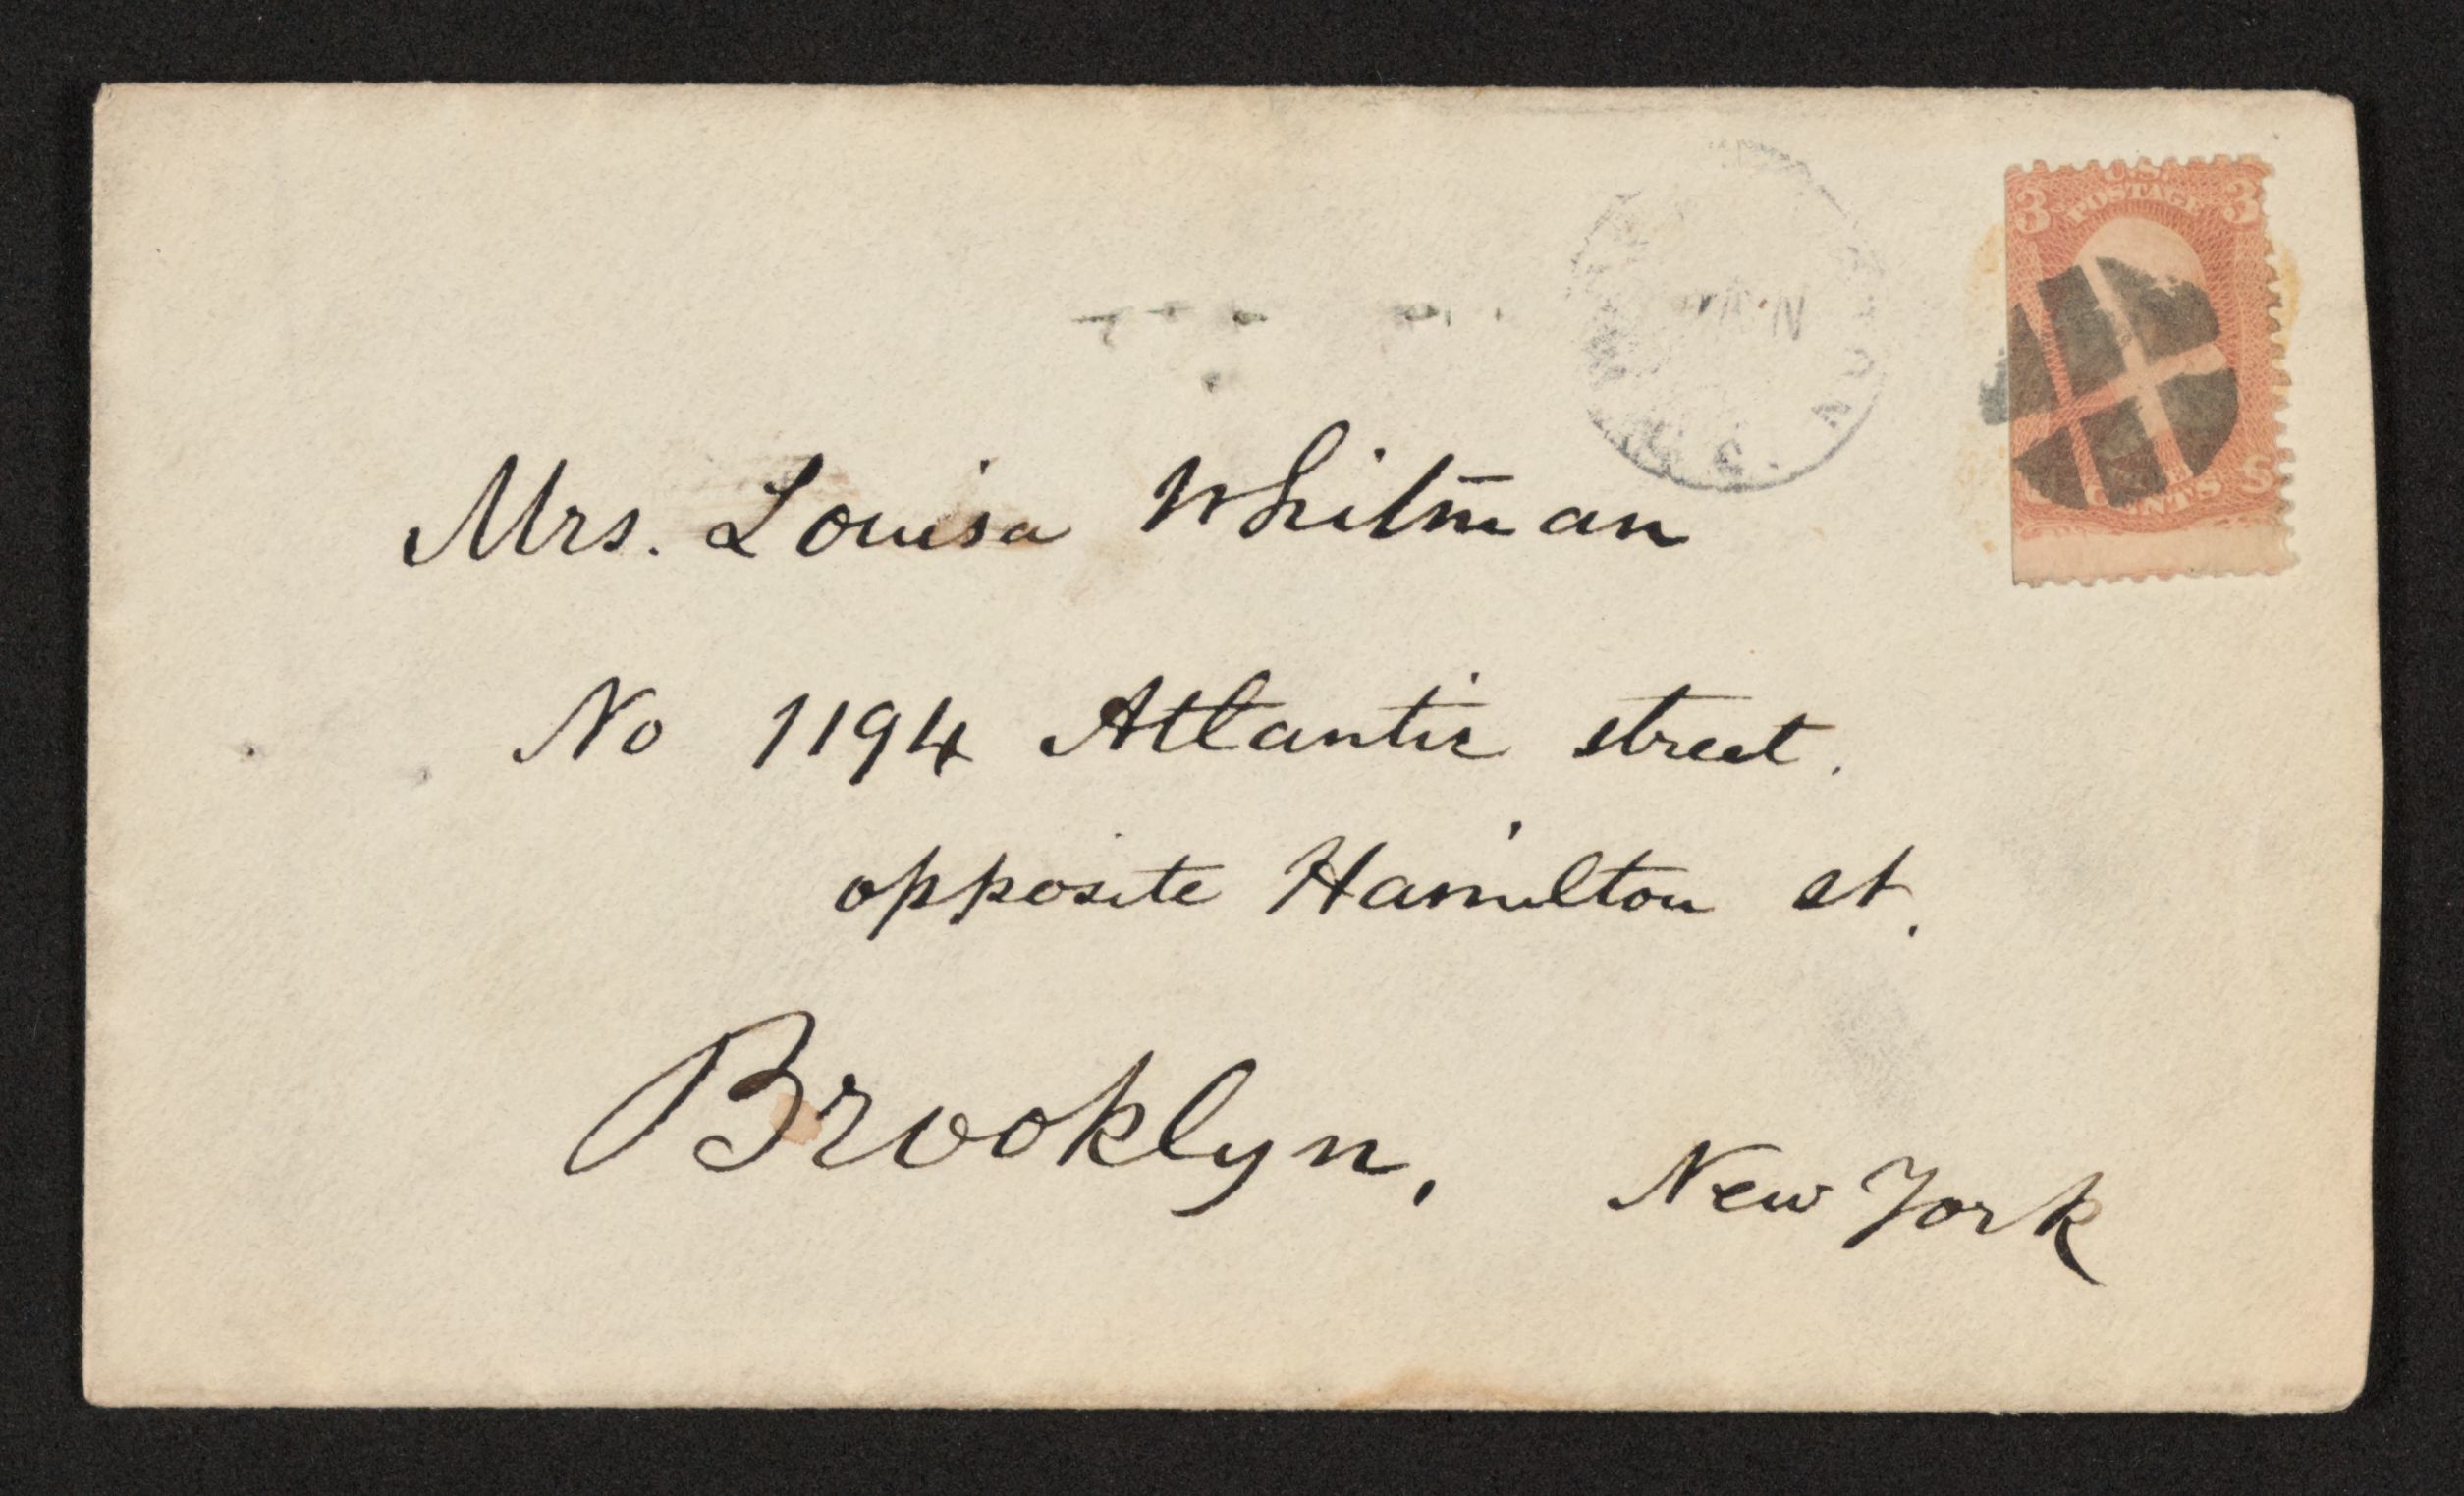 U.S.
POSTAGE
3 3
CENTS
Mrs. Louisa Whitman
No 1194 Atlantic street.
opposite Hamilton st.
Brooklyn, New York